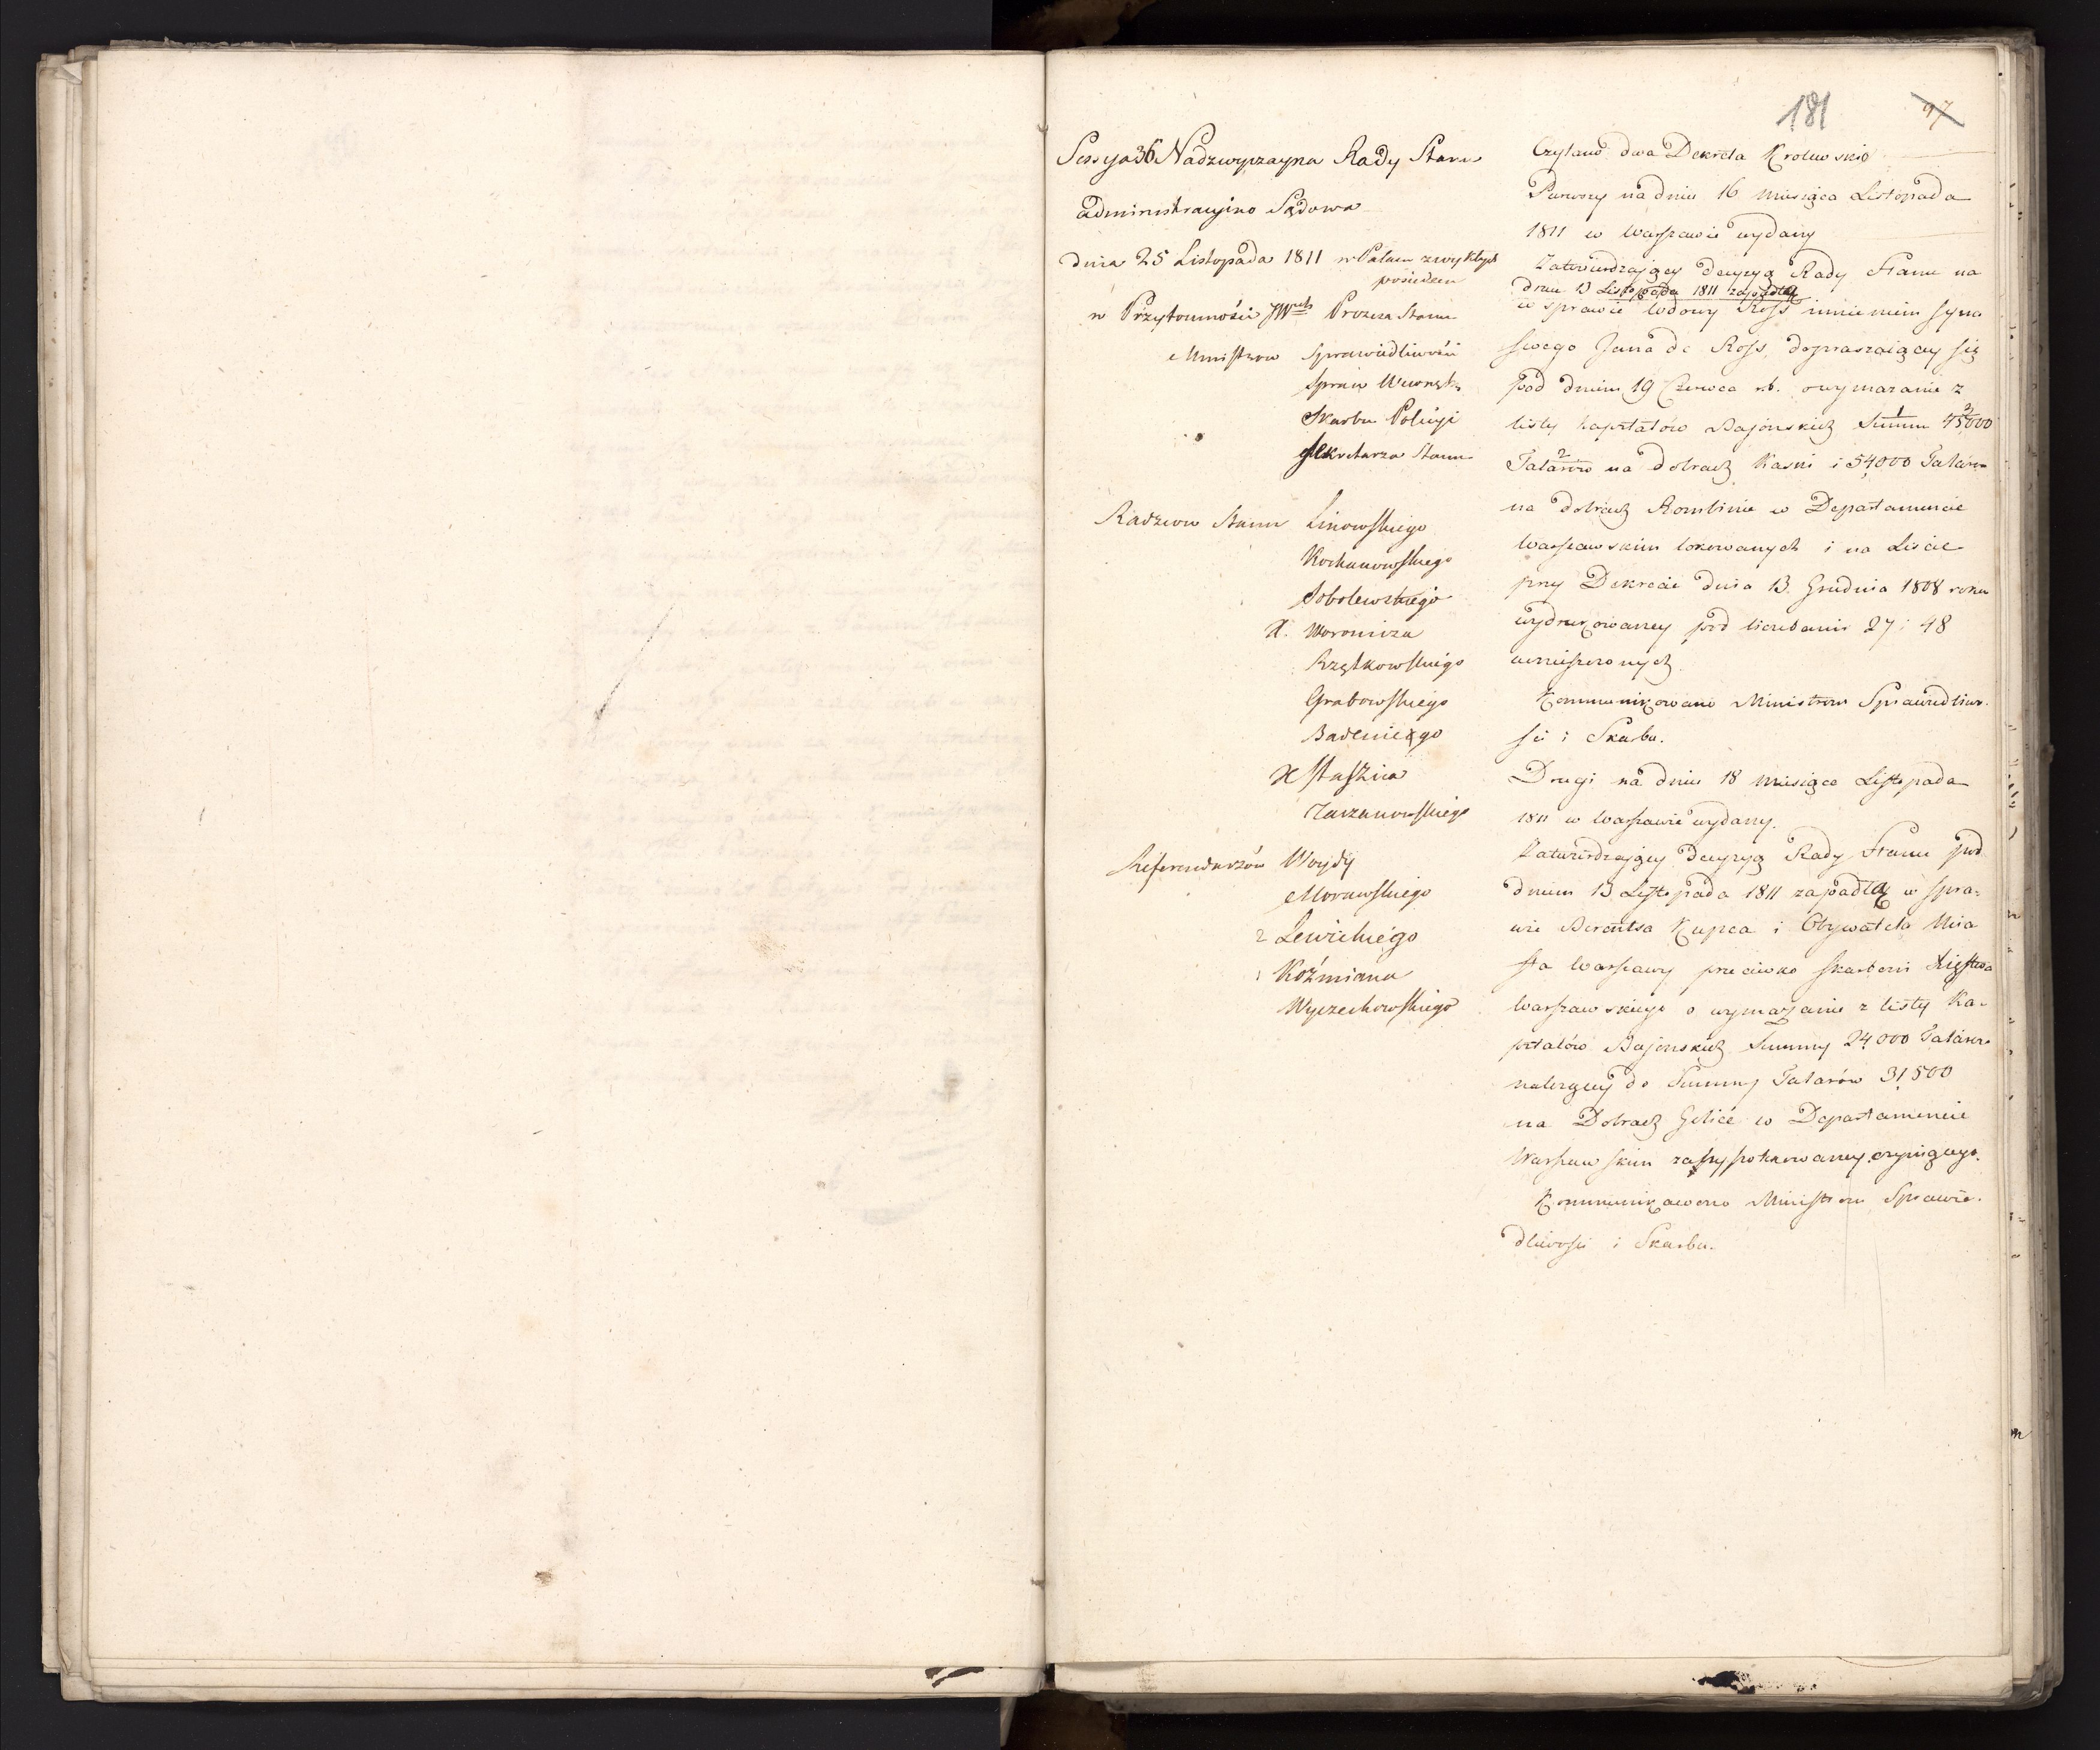 181
97
Sessya 36 Nadzwyczayna Rady Stanu
administracyino Sądowa
dnia 25 Listopada 1811 w Pałacu zwykłych
posiedzeń
w Przytomności JWch Prezesa Stanu
Ministrow Sprawiedliwości
Spraw Wewnętz
Skarbu Policyi
Sekretarza Stanu
Radzcow Stanu Linowskiego
Kochanowskiego
Sobolewskiego
X. Woronicza
Rzętkowskiego
Grabowskiego
Badeniego
X Staszica
Tarzanowskiego
Referendarzów Woydy
Morawskiego
2 Lewickiego
1 Koźmiana
Wyczechowskiego
Czytano dwa Dekreta Krolewskie
Pierwszy na dniu 16 miesiąca Listopada
1811 w Warszawie wydany
Zatwierdzaiący decyzyą Rady Stanu na
dniu 13 Listopada 1811 zapadłą
w sprawie Wdowy Ross imieniem syna
swego Jana de Ross, dopraszaiącey się
pod dniem 19 Czerwca r.b. o wymazanie z
listy kapitałów Bajońskich Summ 45,000
Talarów na dobrach Kaski i 54,000 Talarow
na dobrach Rombinie w Departamencie
Warszawskim lokowanych i na Liscie
przy Dekrecie dnia 13 Grudnia 1808 roku
wydrukowaney pod liczbami 27 i 48
umieszczonych.
Kommunikowano Ministrom Sprawiedliwo-
ści i Skarbu.
Drugi na dniu 18 miesiąca Listopada
1811 w Warszawie wydany.
Zatwierdzaiący decyzyą Rady Stanu pod
dniem 13 Listopada 1811 zapadłą w spra-
wie Berentsa Kupca i Obywatela Mia
sta Warszawy przeciwko skarbowi Xięstwa
Warszawskiego o wymazanie z listy Ka-
pitałów Bajońskich Summy 24,000 Talarow
należącey do Summy Talarów 31,500
na Dobrach Gelice w Departamencie
Warszawskim zahypotekowaney czyniącego.
Kommunikowano Ministrom Sprawie-
dliwości i Skarbu.